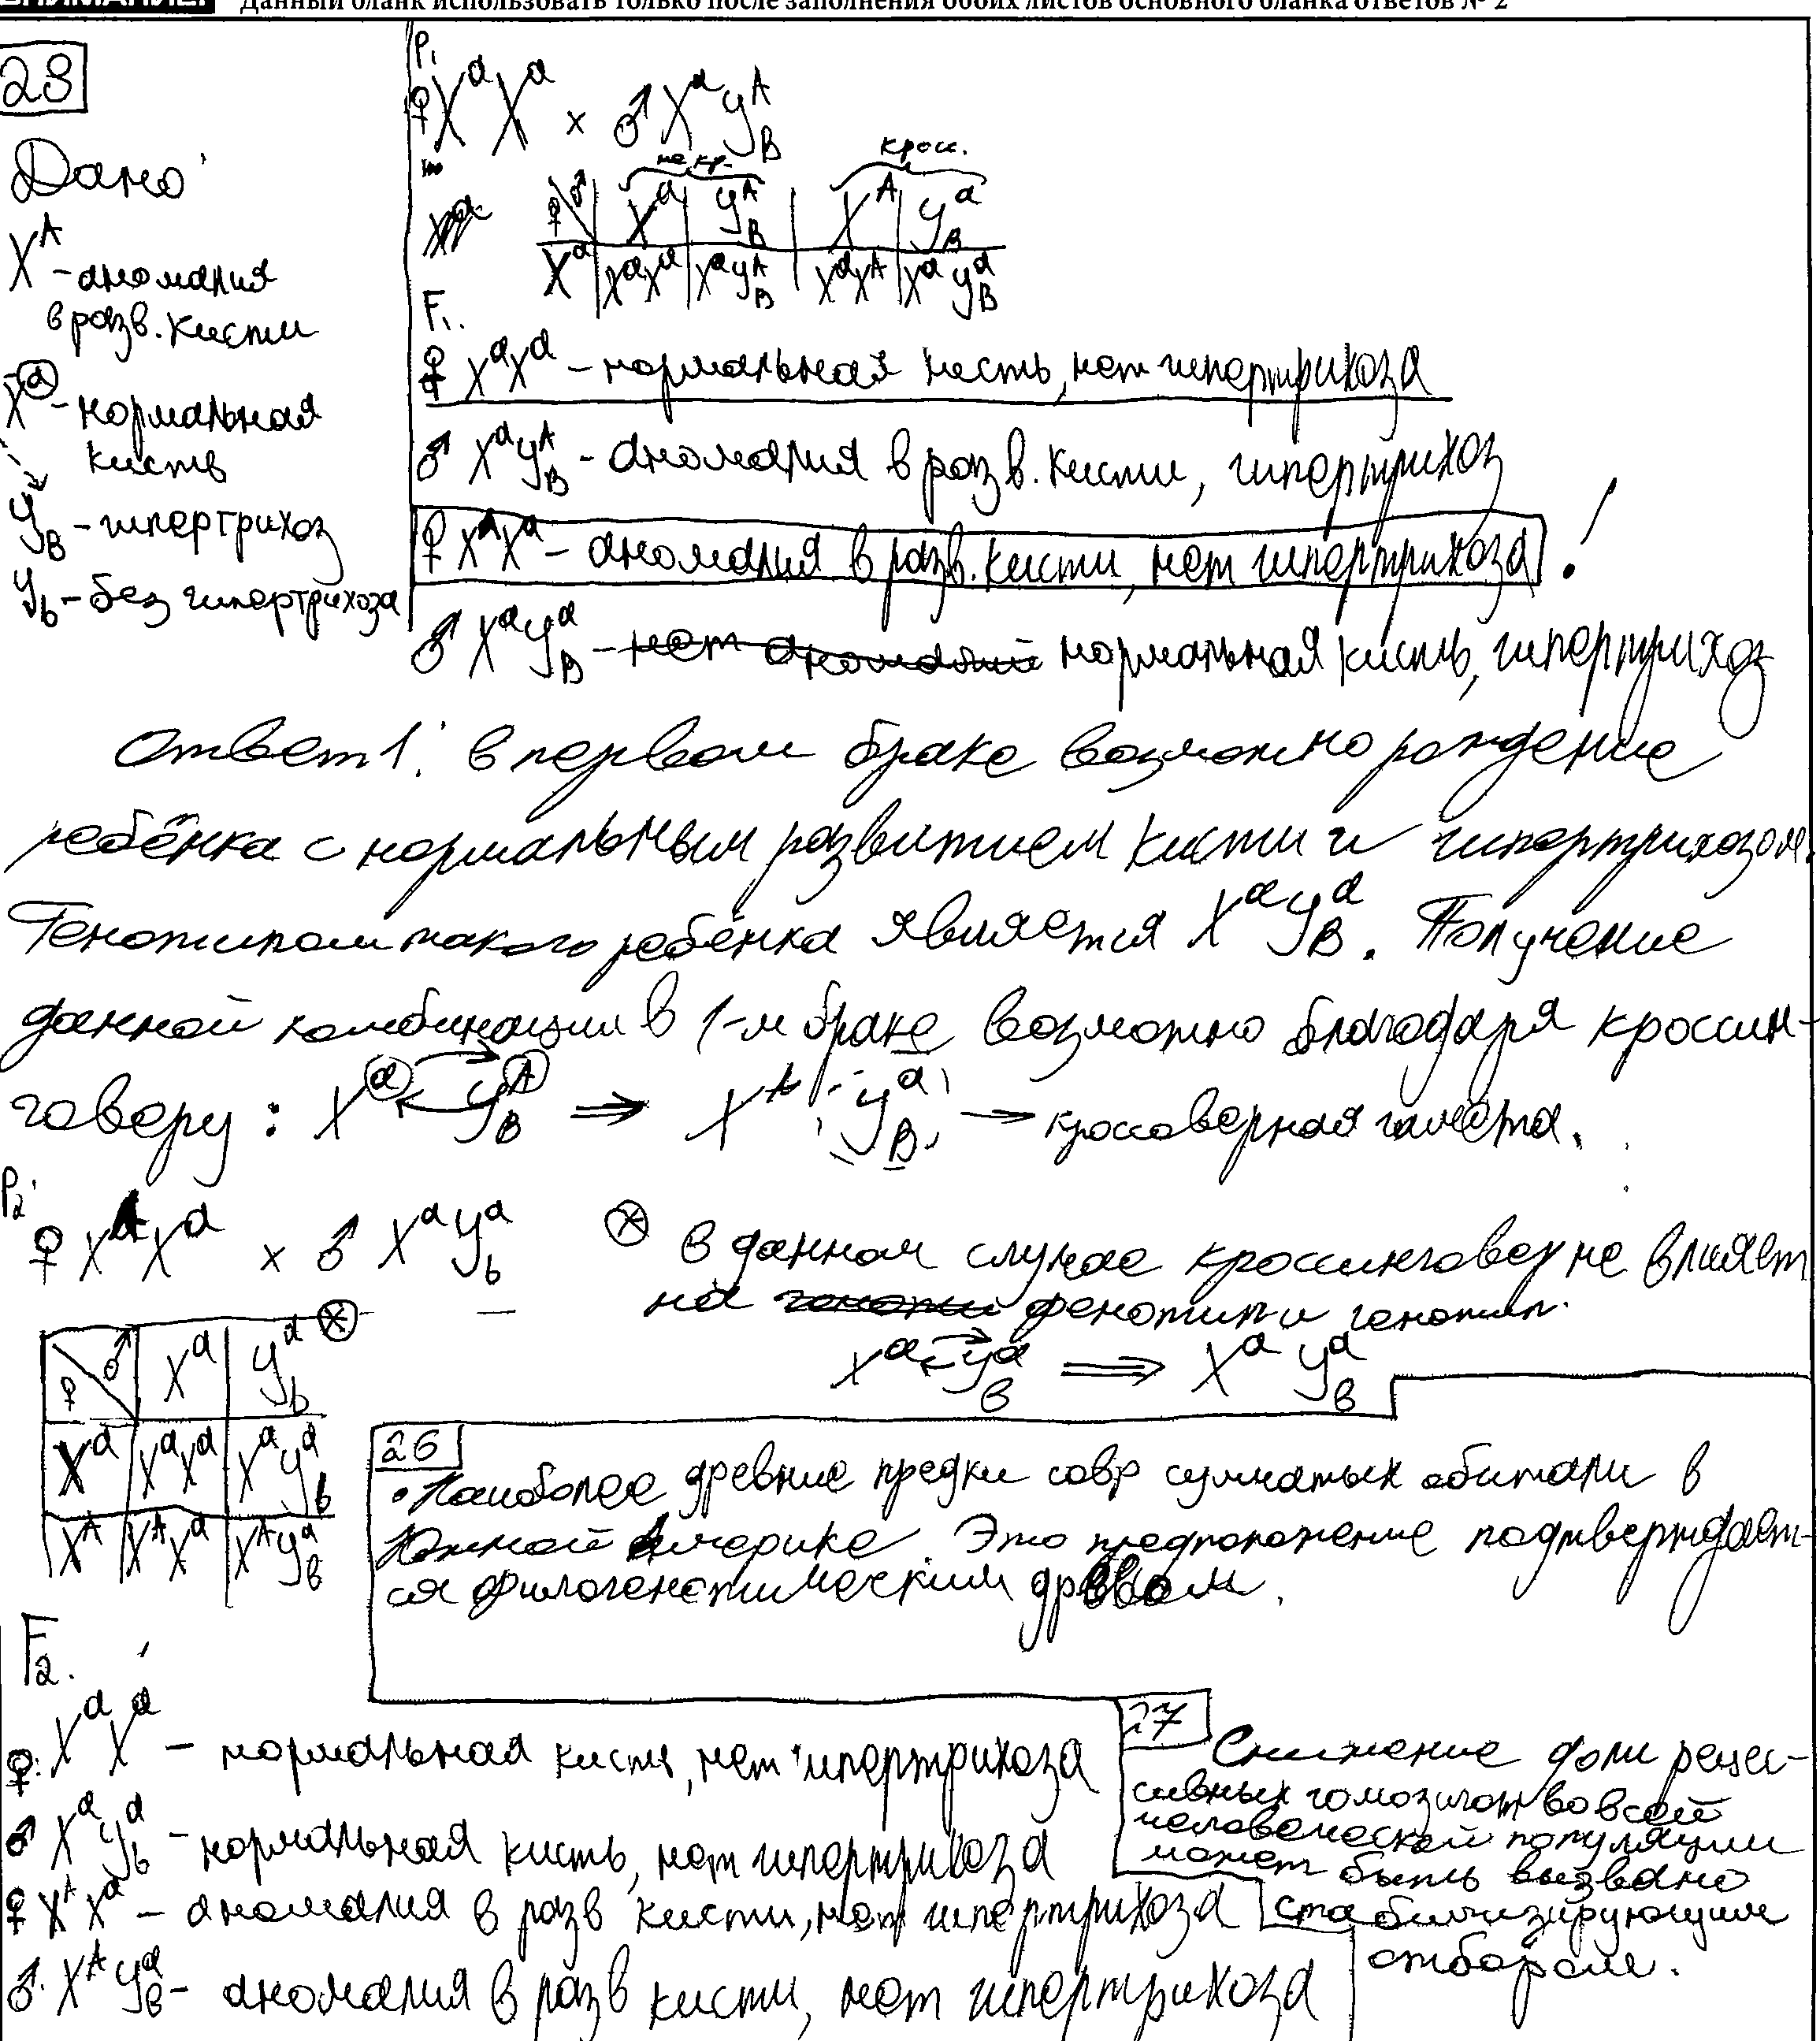 Данный бланк использовать только после заполнения обоих листов основного бланка ответов № 2
28
Дано:
X^A - аномалия
в разв. кисти
X^a - нормальная
кисть
y_B - гипертрихоз
y_b - без гипертрихоза
P₁
♀ X^a X^a × ♂ X^a y_B^A
не кр. кросс.
♀ ♂ X^a y_B^A X^A y_B^a
X^a X^aX^a X^ay_B^A X^aX^A X^a y_B^a
F₁.
♀ X^aX^a - нормальная кисть, нет гипертрихоза
♂ X^a y_B^A - аномалия в разв. кисти, гипертрихоз
♀ X^AX^a - аномалия в разв. кисти, нет гипертрихоза !
♂ X^a y_B^a - нет аномалий нормальная кисть, гипертрихоз
Ответ 1: в первом браке возможно рождение
ребёнка с нормальным развитием кисти и гипертрихозом.
Генотипом такого ребёнка является X^a y_B^a. Получение
данной комбинации в 1-м браке возможно благодаря кроссин-
говеру: X^a y_B^A ⇒ X^A y_B^a → кроссоверная гамета.
P₂:
♀ X^A X^a × ♂ X^a y_b^a
⊗ в данном случае кроссинговер не влияет
на фенотип и генотип.
X^a y_b^a ⇒ X^a y_b^a
♀ ♂ X^a y_b^a ⊗
X^a X^aX^a X^a y_b^a
X^A X^AX^a X^A y_b^a
26
• Наиболее древние предки совр сумчатых обитали в
Южной Америке. Это предположение подтверждает-
ся филогенетическим древом.
F₂.
♀: X^a X^a - нормальная кисть, нет гипертрихоза
♂ X^a y_b^a - нормальная кисть, нет гипертрихоза
♀ X^A X^a - аномалия в разв кисти, нет гипертрихоза
♂: X^A y_b^a - аномалия в разв кисти, нет гипертрихоза
27
Снижение доли рецес-
сивных гомозигот во всей
человеческой популяции
может быть вызвано
стабилизирующим
отбором.